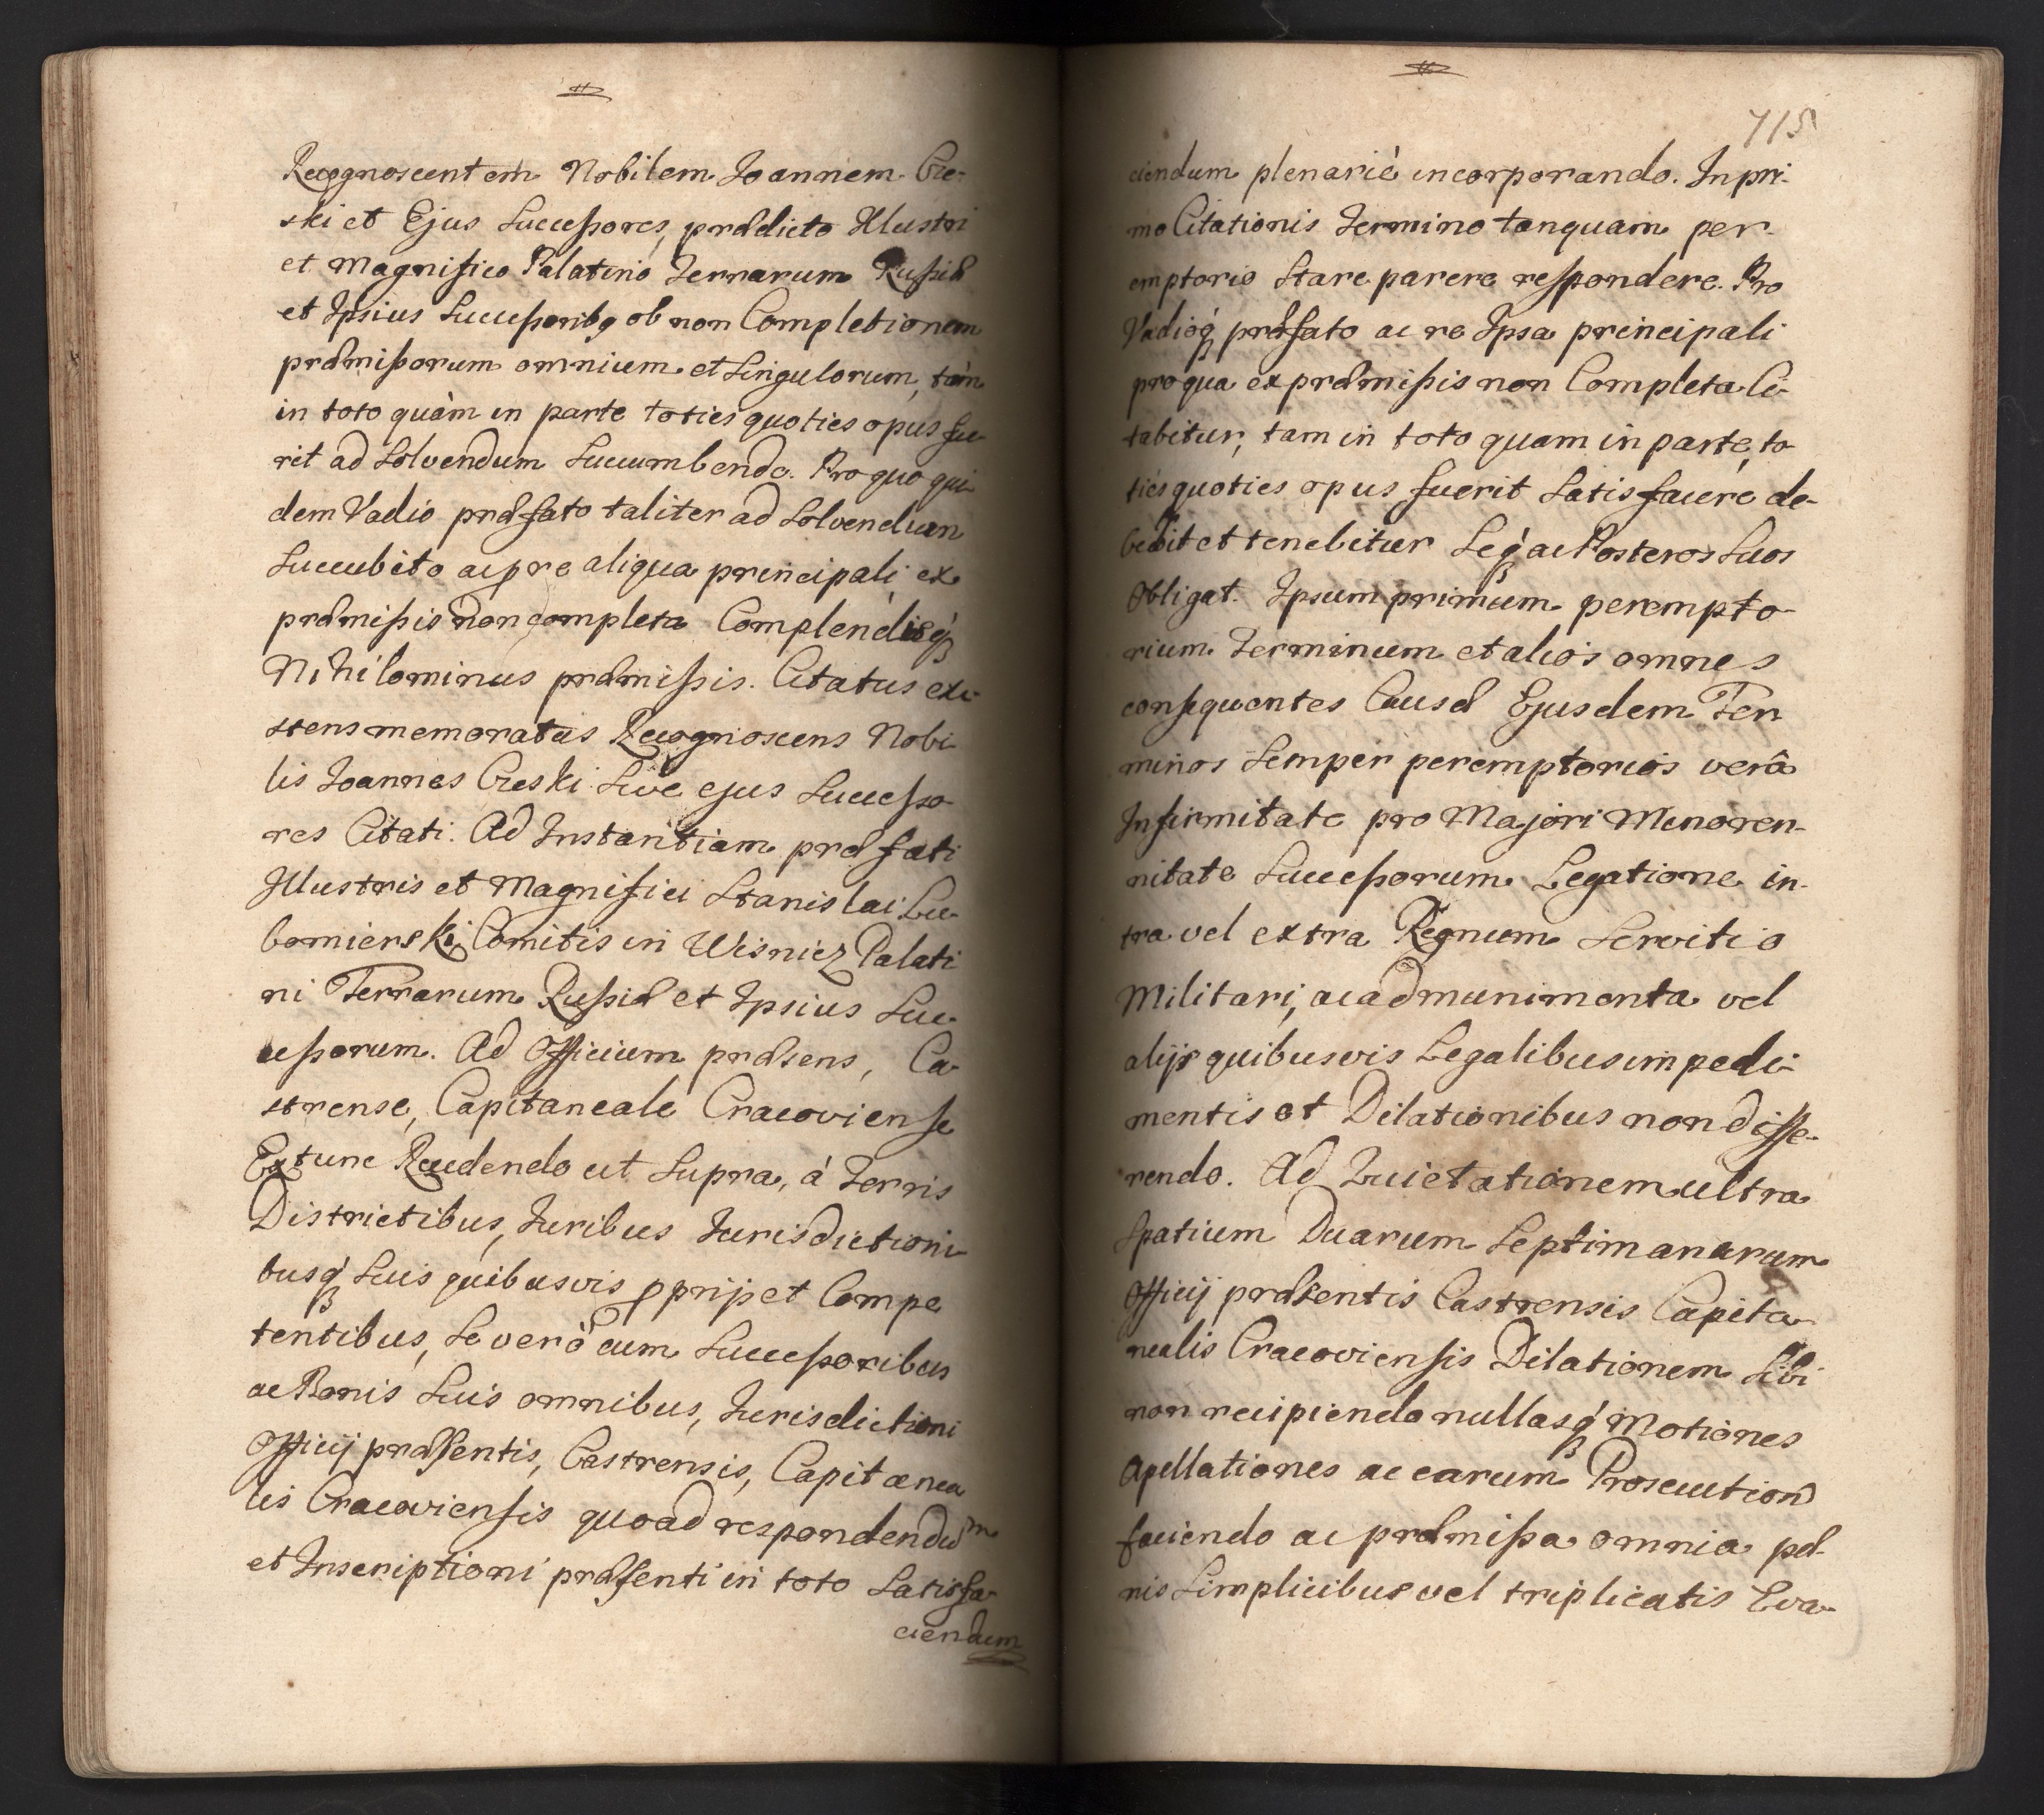 Recognoscentem Nobilem Joannem Cie-
ski et Ejus Successores, prædicto Illustri
et Magnifico Palatino Terrarum Russiæ
et Ipsius Successoribq ob non Completionem
præmissorum omnium et Singulorum, tàm
in toto quàm in parte toties quoties opus fue
rit ad Solvendum Succumbendo. Pro quo qui
dem Vadio præfato taliter ad Solvendum
Succubito ac pre aliqua principali ex
præmissis non completa Complendisq́
Nihilominus præmissis. Citatus exi-
stens memoratus Recognoscens Nobi
lis Joannes Cieski Sive ejus Successo-
res Citati. Ad Instantiam præfati
Illustris et Magnifici Stanislai Lu-
bomierski Comitis in Wisnicz Palati
ni Terrarum Russiæ et Ipsius Suc-
cessorum. Ad Officium præsens, Ca-
strense, Capitaneale Cracoviense
Extunc Recedendo ut Supra, à Terris
Districtibus, Juribus Jurisdictioni-
busq́ Suis quibusvis pprijs et Compe
tentibus, Se verò cum Successoribus
ac Bonis Suis omnibus, Jurisdictioni
Officij præsentis, Castrensis, Capitanea
lis Cracoviensis quoad respondendum
et Inscriptioni præsenti in toto Satisfa-
ciendum
715
ciendum plenariè incorporando. In pri-
mo Citationis Termino tanquam per-
emptorio Stare parere respondere. Pro
Vadioq́ præfato ac re Ipsa principali
pro qua ex præmissis non Completa Ci-
tabitur, tam in toto quam in parte, to
ties quoties opus fuerit Satisfacere de-
bebit et tenebitur Seq́ ac Posteros Suos
Obligat. Ipsum primum perempto-
rium Terminum et alios omnes
consequentes Causæ Ejusdem Ter
minos Semper peremptorios verâ
Infirmitate pro Majori Minoren-
nitate Successorum Legatione in-
tra vel extra Regnum Servitio
Militari, ac ad munimenta vel
alijs quibusvis Legalibus impedi-
mentis et Dilationibus non diffe-
rendo. Ad Quietationem ultra
Spatium Duarum Septimanarum
Officij præsentis Castrensis Capita-
nealis Cracoviensis Dilationem Sibi
non recipiendo nullasq́ Motiones
Apellationes ac earum Prosecution
faciendo ac præmissa omnia pæ-
nis Simplicibus vel triplicatis Eva-